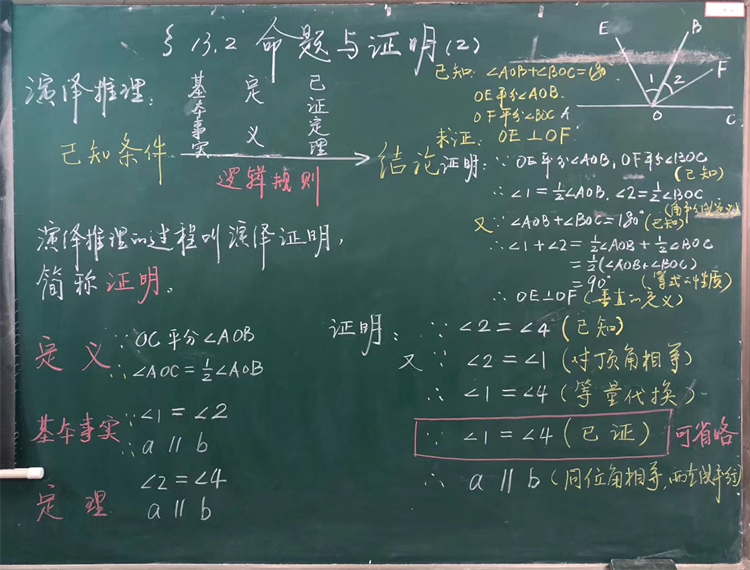 § 13.2 命题与证明(2)
演绎推理:
基本事实
定义
已证定理
已知条件
结论
逻辑规则
演绎推理的过程叫演绎证明,
简称证明。
定义
∵ OC平分∠AOB
∴ ∠AOC=½∠AOB
基本事实
∵ ∠1=∠2
∴ a∥b
定理
∠2=∠4
a∥b
已知: ∠AOB+∠BOC=180°
OE平分∠AOB.
OF平分∠BOC
求证: OE⊥OF
E
B
F
1
2
O
C
证明: ∵ OE平分∠AOB, OF平分∠BOC
(已知)
∴ ∠1=½∠AOB. ∠2=½∠BOC
(角平分线定义)
又∵ ∠AOB+∠BOC=180°(已知)
∴ ∠1+∠2=½∠AOB+½∠BOC
=½(∠AOB+∠BOC)
=90° (等式的性质)
∴ OE⊥OF (垂直的定义)
证明: ∵ ∠2=∠4(已知)
又∵ ∠2=∠1(对顶角相等)
∴ ∠1=∠4(等量代换)
∵ ∠1=∠4(已证) 可省略
∴ a∥b(同位角相等,两直线平行)